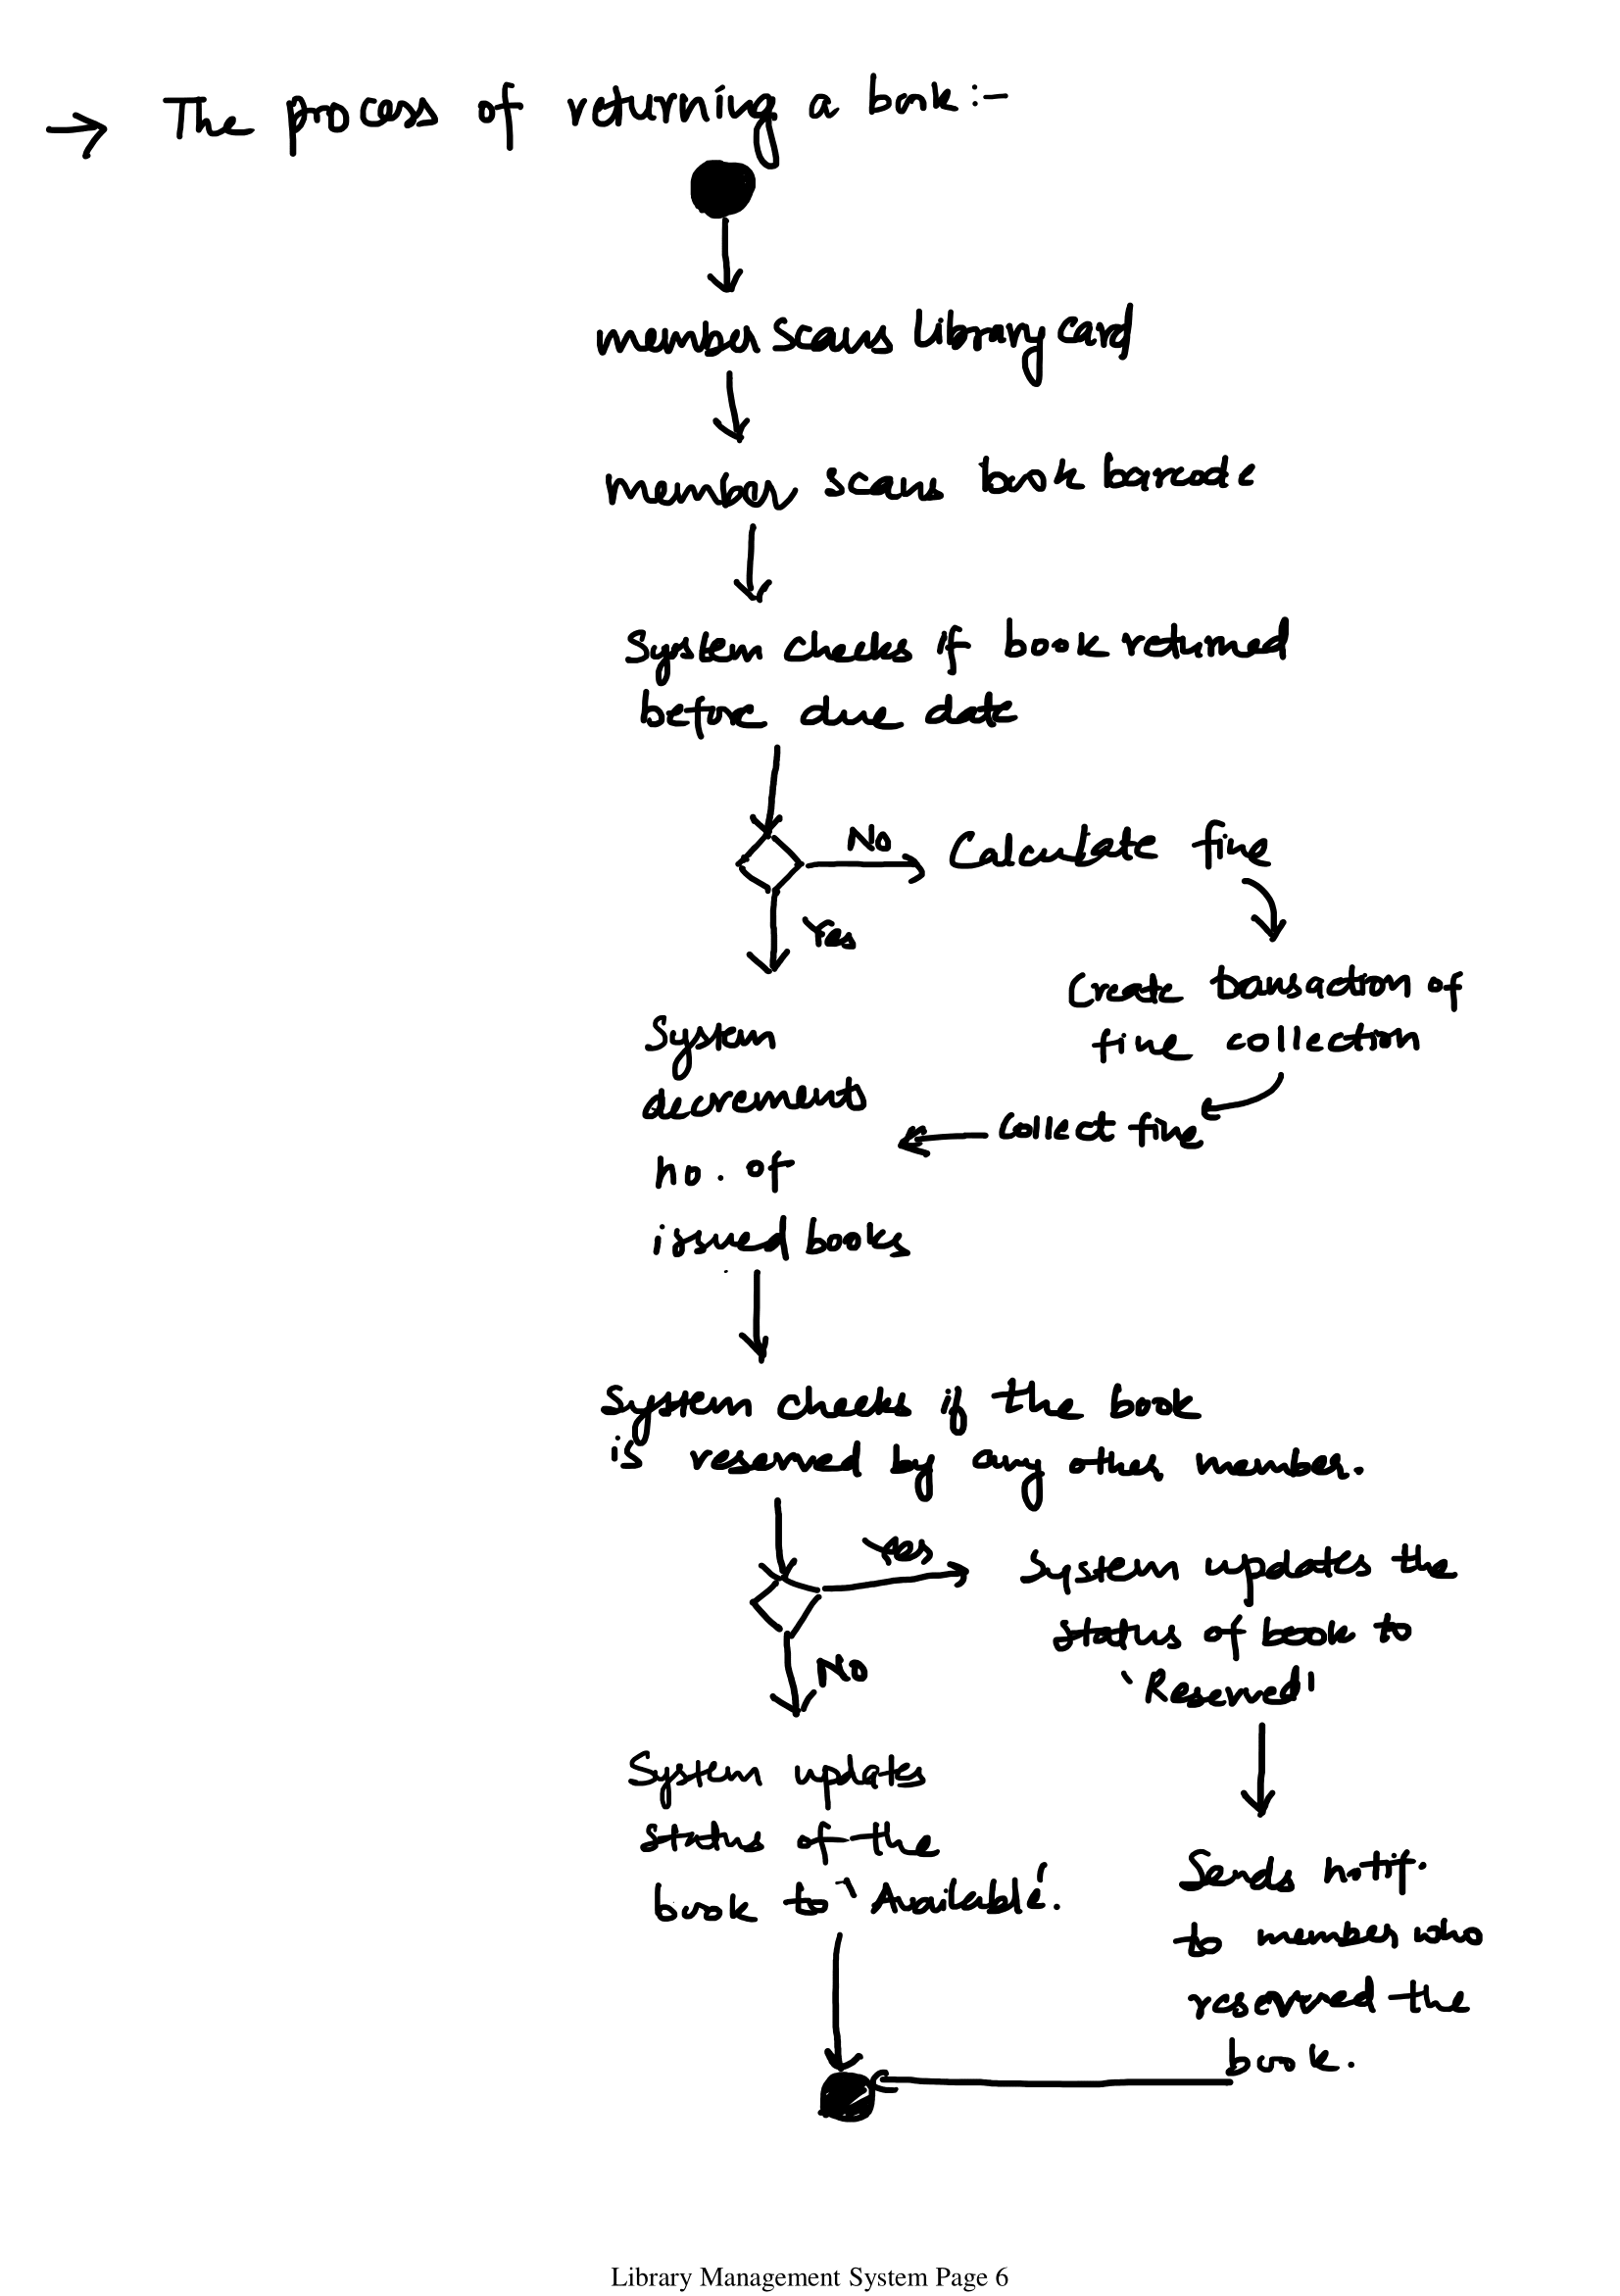 → The process of returning a book:-
member scans library card
member scans book barcode
System checks if book returned
before due date
No
Calculate fine
Yes
Create transaction of
fine collection
System
decrements
collect fine
no. of
issued books
System checks if the book
is reserved by any other member.
Yes
System updates the
status of book to
'Reserved'
No
System updates
status of the
book to 'Available'.
Sends notif.
to member who
reserved the
book.
Library Management System Page 6